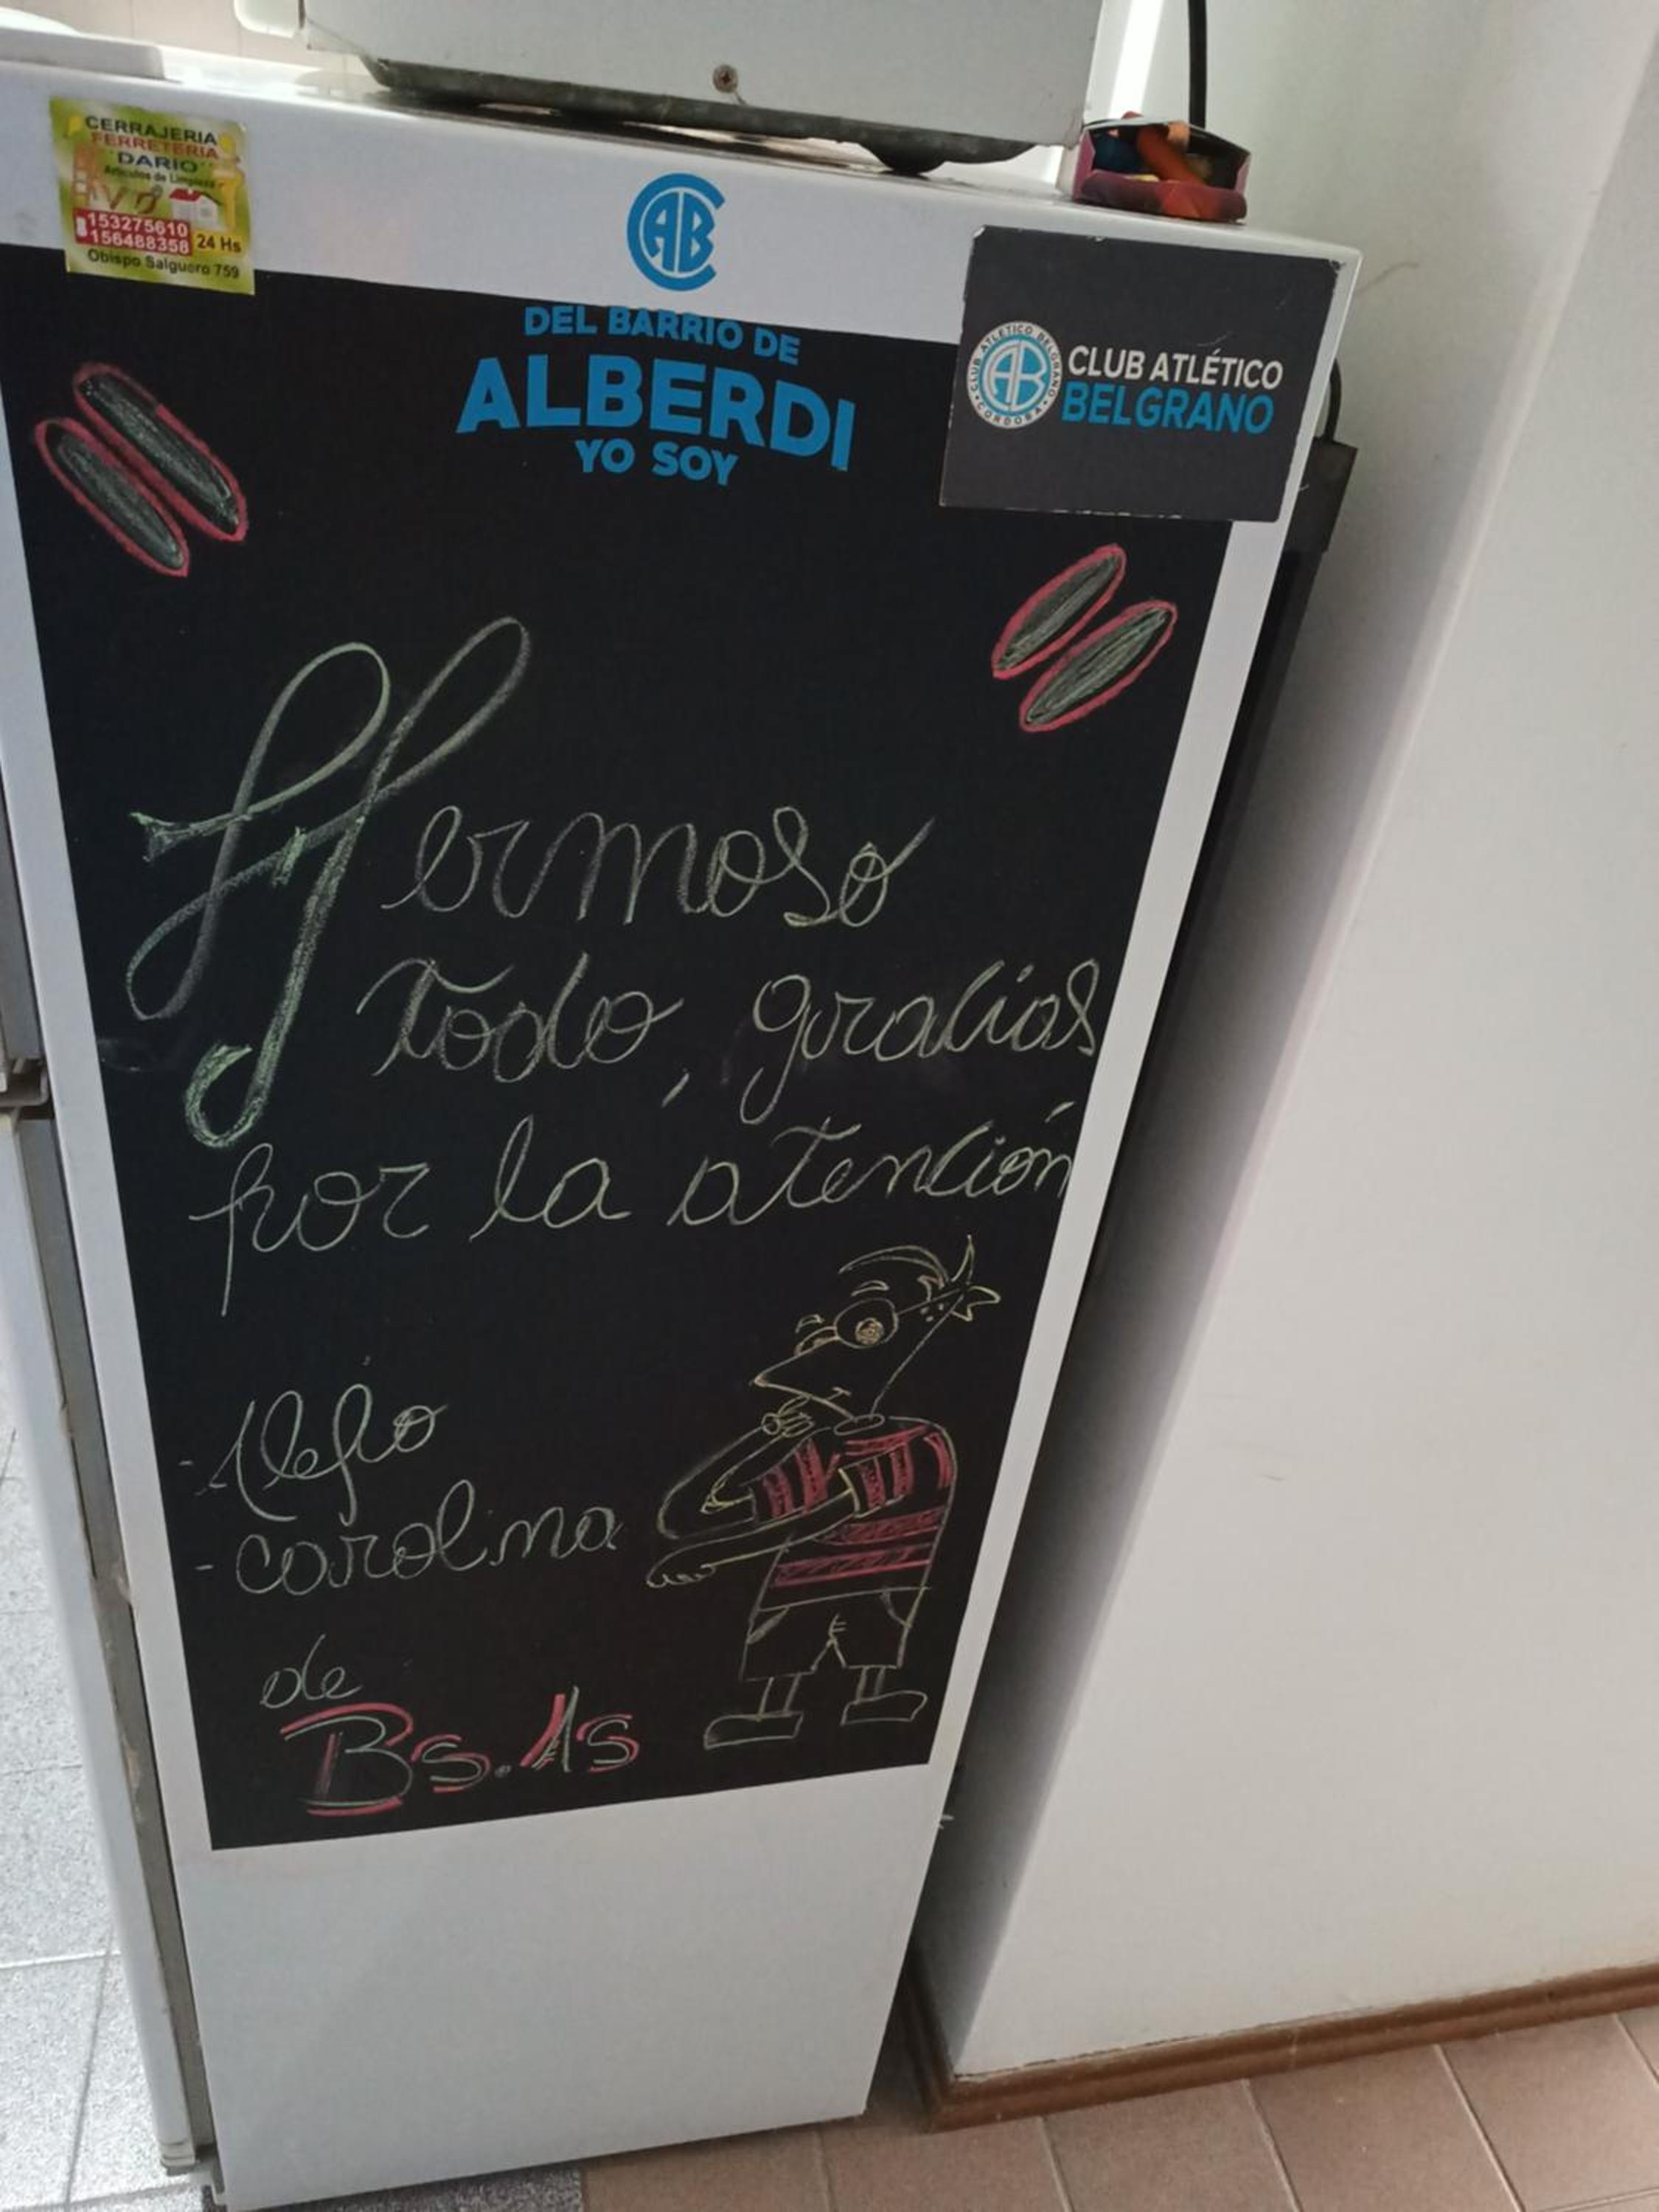 CERRAJERIA
FERRETERIA
"DARIO"
Articulos de Limpieza
153275610
156488358
24 Hs
Obispo Salguero 759
CAB
DEL BARRIO DE
ALBERDI
YO SOY
CLUB ATLETICO BELGRANO
CORDOBA
CLUB ATLÉTICO
BELGRANO
Hermoso
todo, gracias
por la atención
- Alejo
- Carolina
de
Bs.As